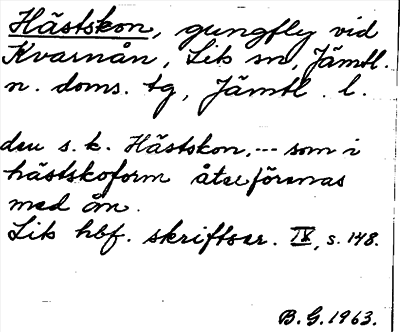 Hästskon, gungfly vid
Kvarnån, Lits sn, Jämtl.
n. doms. tg, Jämtl. l.
den s. k. Hästskon,--- som i
hästskoform återförenas
med ån.
Lits hbf. skriftser. IV, s. 148.
B. G. 1963.